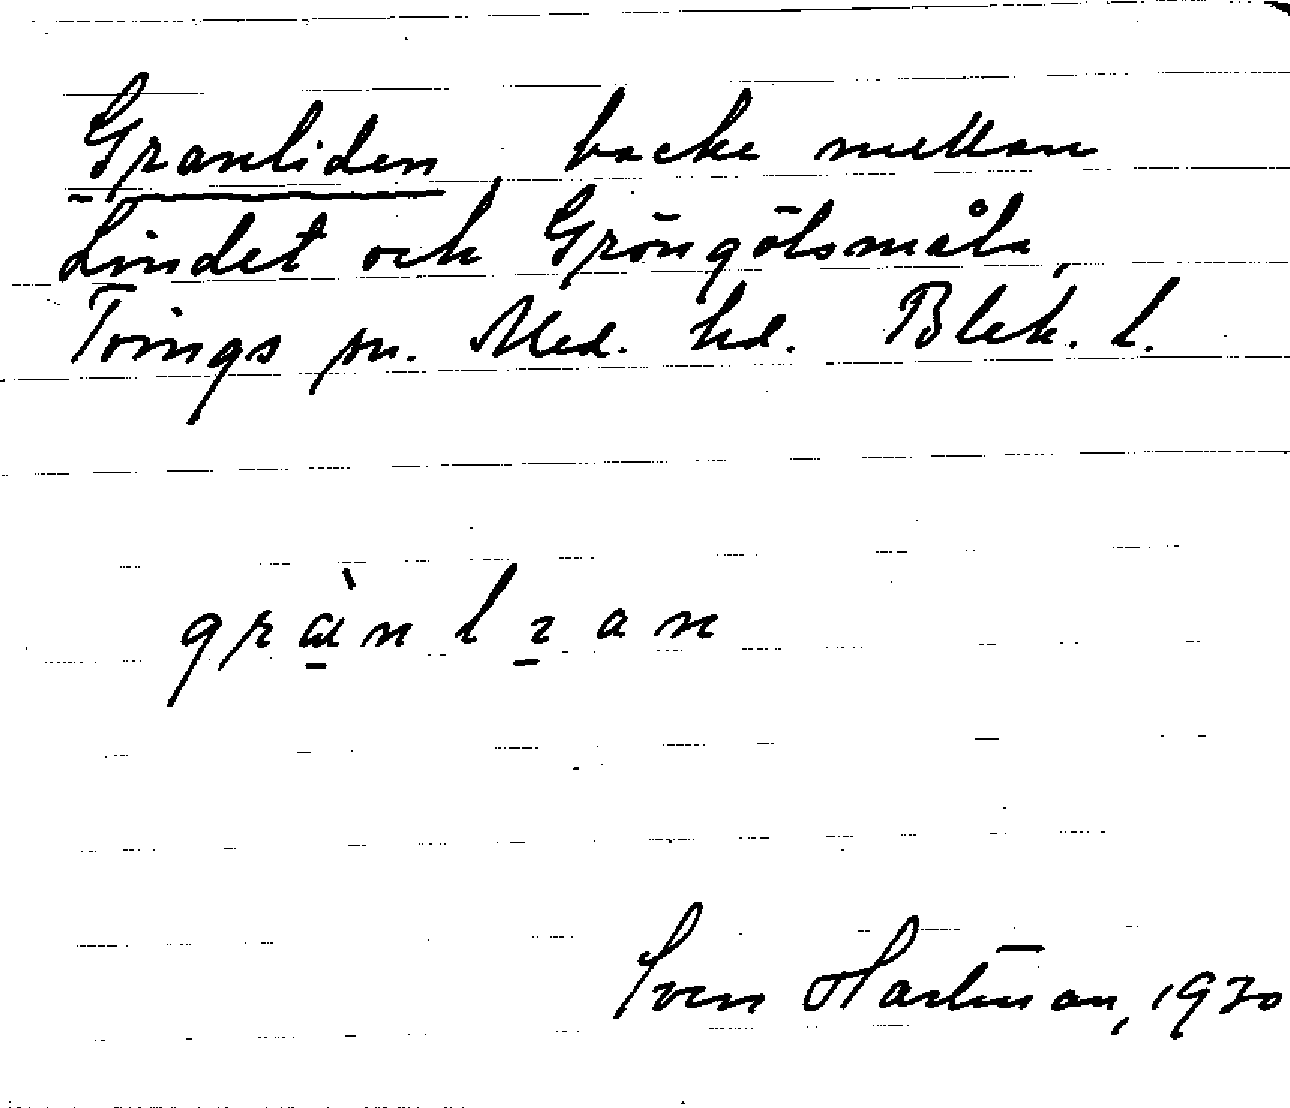 Granliden, backe mellan
Lindet och Gröngölsmåla,
Tvings sn. Med. hd. Blek. l.
Sven Hartman, 1930